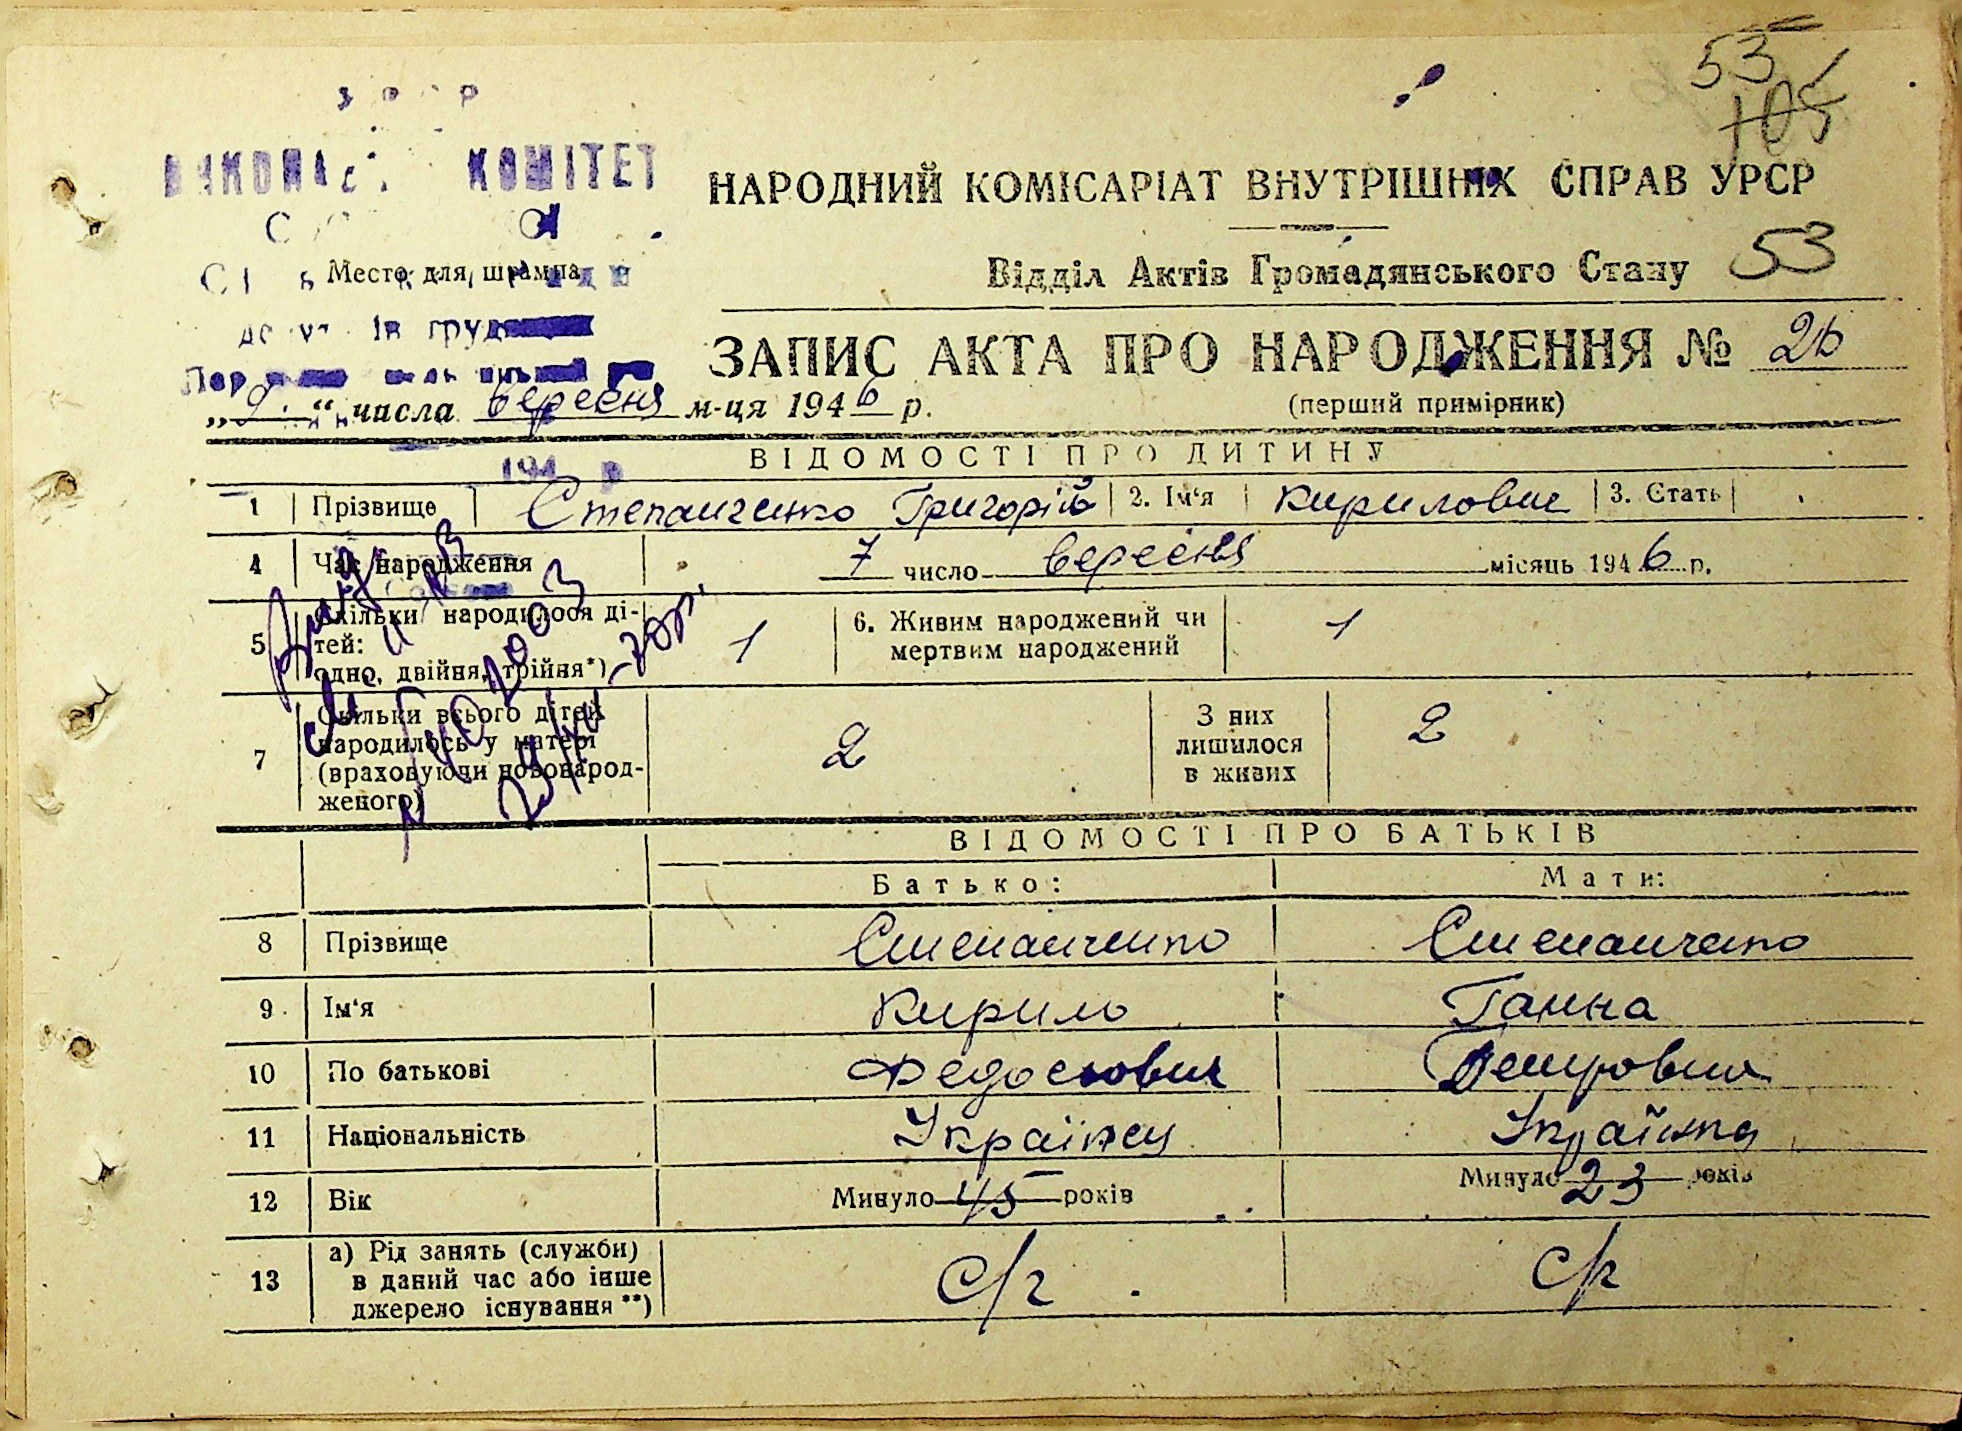 53
105
КОМІТЕТ
НАРОДНИЙ КОМІСАРІАТ ВНУТРІШНІХ СПРАВ УРСР
Место для штампа
Відділ Актів Громадянського Стану 53
ЗАПИС АКТА ПРО НАРОДЖЕННЯ № 26
„9“ числа вересня м-ця 1946 р.
(перший примірник)
194 р
ВІДОМОСТІ ПРО ДИТИНУ
1 Прізвище Степанченко Григорій 2. Ім‘я Кирилович 3. Стать
4 Час народження 7 число вересня місяць 1946 р.
5 Скільки народилося ді-
тей:
одно, двійня, трійня*) 1
6. Живим народжений чи
мертвим народжений 1
7 Скільки всього дітей
народилось у матері
(враховуючи новонарод-
женого) 2
З них
лишилося
в живих 2
ВІДОМОСТІ ПРО БАТЬКІВ
Батько: Мати:
8 Прізвище Степанченко Степанченко
9 Ім‘я Кирило Ганна
10 По батькові Федосович Петровна
11 Національність Українец Українка
12 Вік Минуло 45 років Минуло 23 років
13 а) Рід занять (служби)
в даний час або інше
джерело існування **) с/г с/г